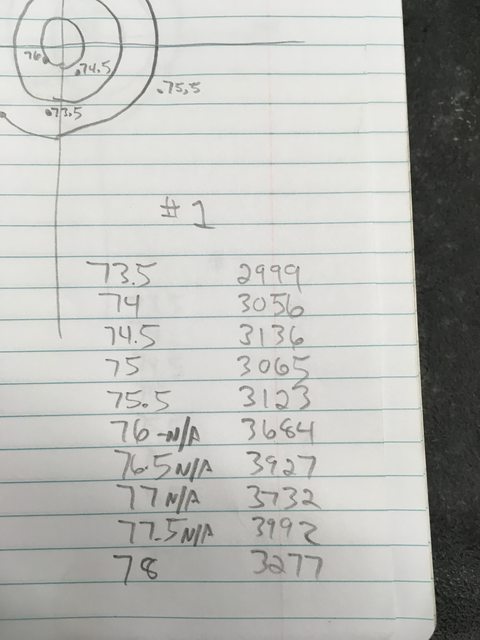 76
.74.5
.75.5
.73.5
# 1
73.5 2999
74 3056
74.5 3136
75 3065
75.5 3123
76-N/A 3684
76.5 N/A 3927
77 N/A 3732
77.5 N/A 3992
78 3277